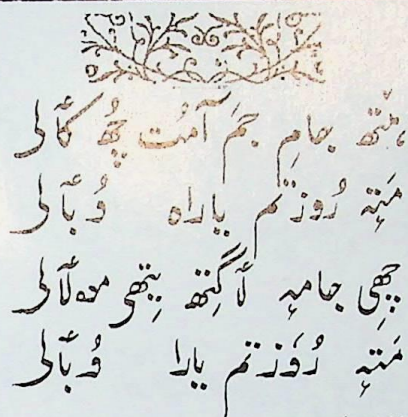 ہٮ۪تھ جامِ جَم آمُت چُھ کٲلی
مَتہٕ رُوزتم یاراہ وُبٲلی
چِھی جامہٕ لٲگِتھ یِتھی مولٲلی
مَتہٕ رُوزتم یارا وُبٲلی